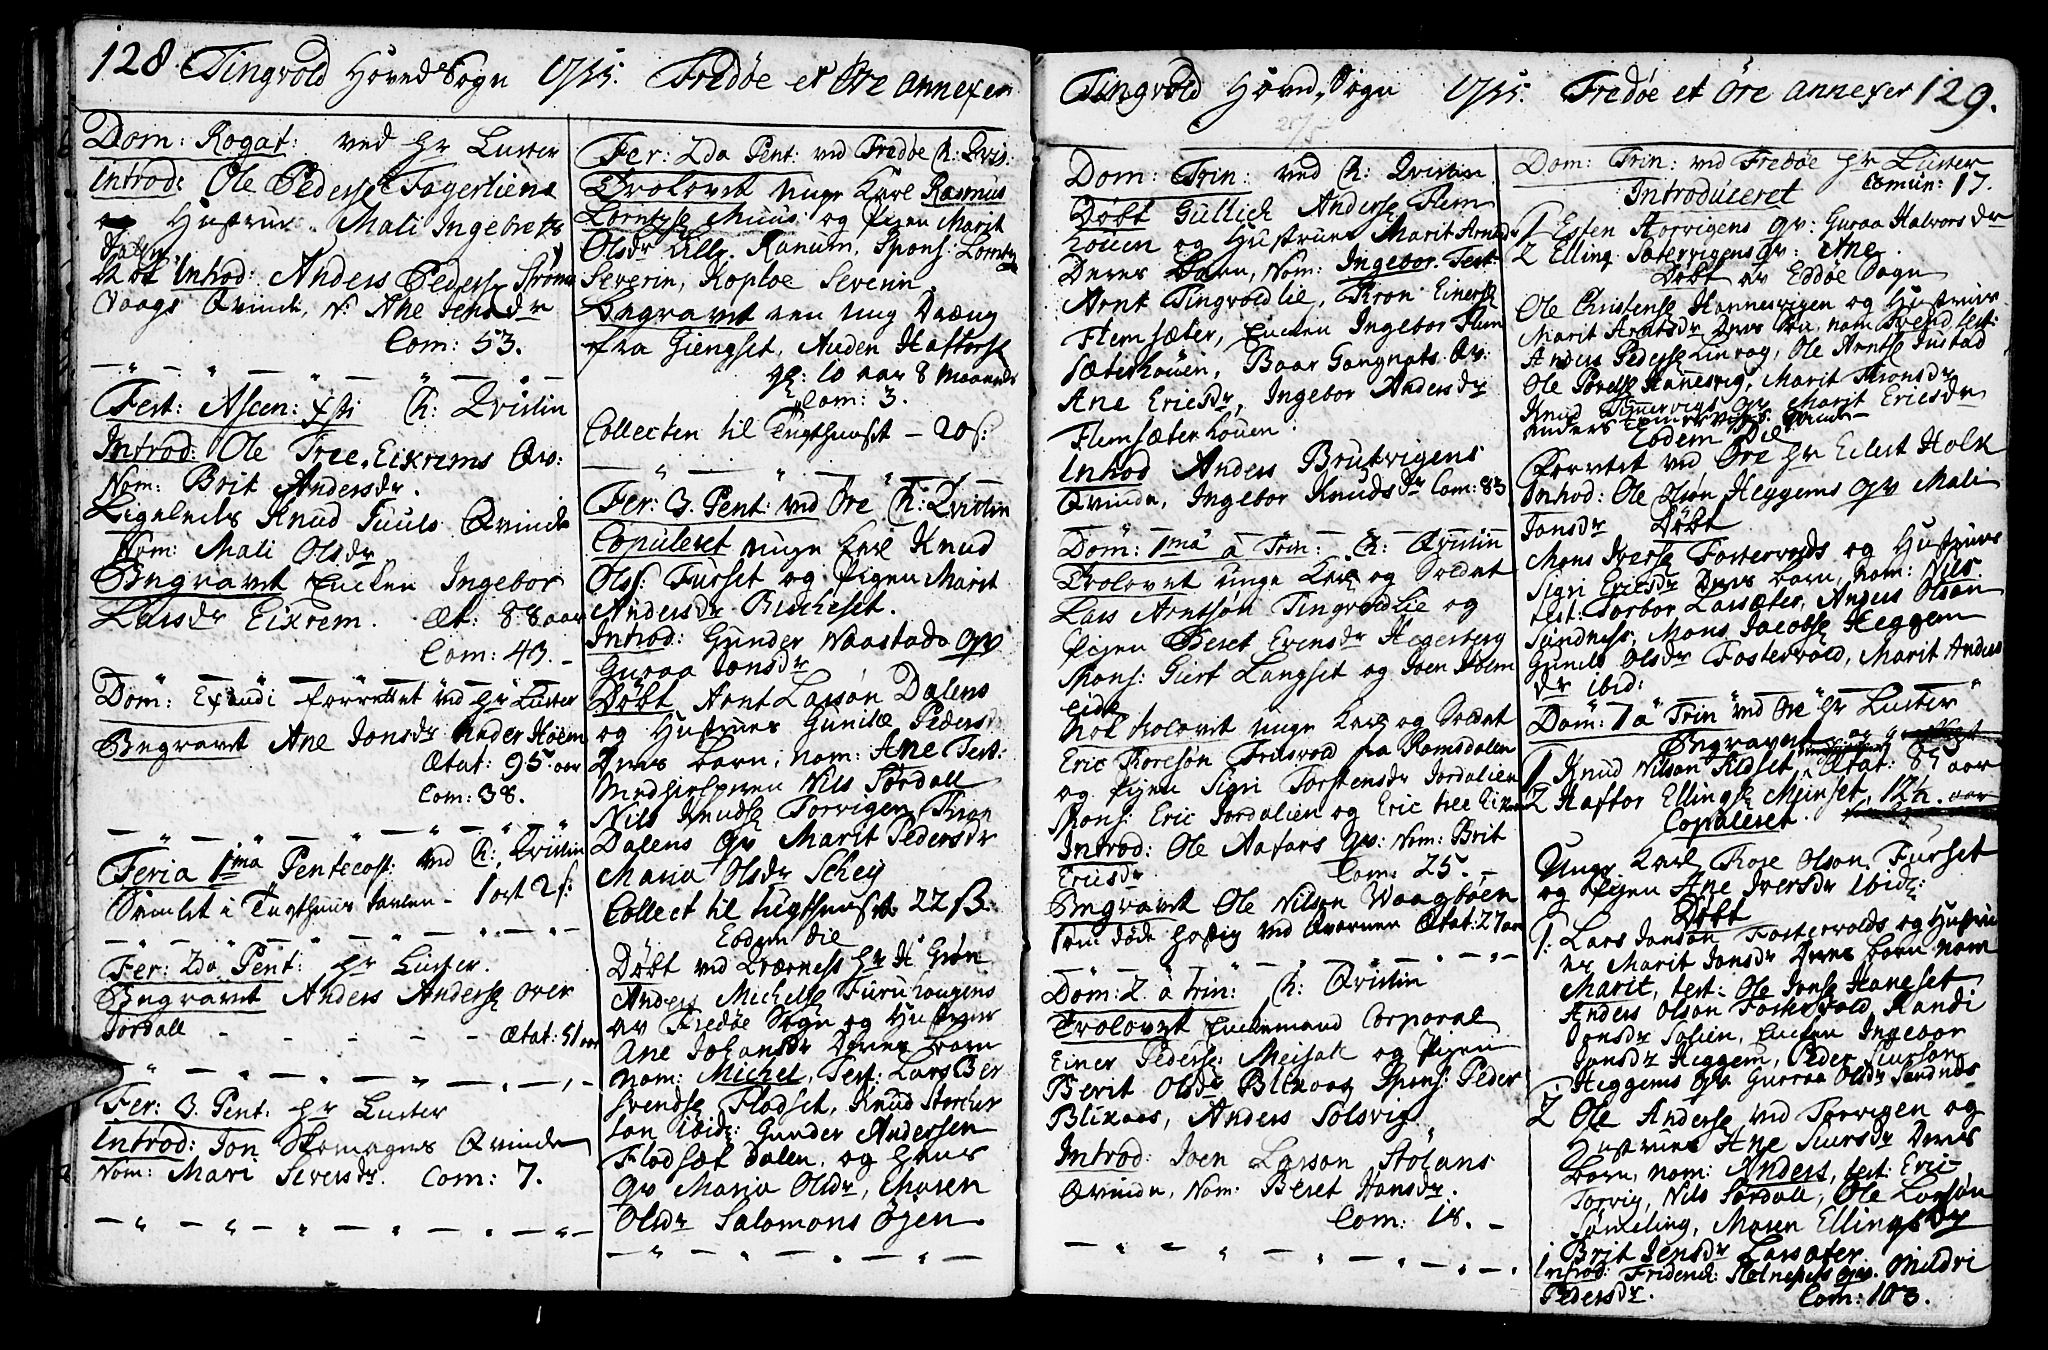 128. Tingvold Hoved Sogn 1755. Fredøe et Øre annexer
Dom: Rogat: ved Hr Luster
Introd: Ole Peders Fagerliens
Hustrue. Mali Ingebrets
datter.
Nok Introd: Anders Peders Strøms
Vaags Qvinde, N: Ane Jensdr
Com: 53.
Fest: Ascen: Xsti C: Qvistin
Introd: Ole Tree, Eikrems Qv:
Nom: Brit Andersdr.
Ligeledes Knud Juuls Qvinde
Nom: Mali Olsdr
Begravet Enken Ingebor
Larsdr Eikrem. Æt: 88 aar
Com: 43.
Dom: Exaudi forrettet ved Hr Luster
Begravet Ane Jonsdr Nader Hoem
Ætat: 95 aar
Com: 38.
Feria 1ma Pentecost: ved C: Qvistin
Samlet i Tugthuus tavlen - 1 ort 2 s:
Fer: 2da Pent: Hr Luster.
Begravet Anders Anders over
Jordall - - - - - Ætat: 51 aar
Fer: 3. Pent: Hr Luster
Introd: Jon Skomagers Qvinde
Nom: Mari Siversdr. Com: 7.
Fer: 2da Pent: ved Fredøe C: Qvis:
Trolovet unge Karl Rasmus
Lorntzs Muus og Pigen Marit
Olsdr Lille Ranum, Spons: Lorntz
Severin, Koploe Severin.
Begravet een ung Dreng
fra Giengset, Auden Haftors
gl: 10 aar 8 Maaneds
Com: 3.
Collecten til Tugthuuset - 20 s:
Fer: 3. Pent: ved Øre C: Qvistin
Copuleret unge Karl Knud
Ols: Furset og Pigen Marit
Andersdr Bircheset.
Introd: Gunder Naastads Qv
Guraa Jonsdr
Døbt Arnt Larsøn Dalens
og Hustrues Gunild Pedersdr
Deres barn, nom: Ane Test:
Medhielperen Nils Sørdall
Nils Knuds Torvigen, Thron
Dalens Qv Marit Pedersdr
Maria Olsdr Schey
Collect til tugthuuset 22 ß.
Eodem die
Døbt ved Qværness Hr H: Grøn
Anders Michels Furuhougens
av Fredøe Sogn og Hustrues
Ane Johansdr Deres barn
nom: Michel, Test: Lars Ber
Svends Flodset, Knud Storhur
ibid: Gunder Andersen
Flodsæt dalen, og hans
Qv Maria Olsdr, Maren
Olsdr Salomons Øyen
Tingvold Hoved Sogn 1755. Fredøe et Øre annexer 129.
Dom: Trin: ved C: Qvistin
Døbt Gullick Anders Flem
houen og Hustrues Marit Arnsdr
Deres Barn, Nom: Ingebor. Test:
Arnt Tingvoldlie, Thron Einers
Flemsæter, Encken Ingebor Flem
sæterhouen, Baar Gangnats Qv:
Ane Ericsdr, Ingebor Andersdr
Flemsæterhouen.
Introd Anders Brutvigens
Qvinde, Ingebor Knudsdr Com: 83
Dom: 1ma a Trin: C: Qvistin
Trolovet unge Karl og Soldat
Lars Arntsøn Tingvoldlie og
Pigen Beret Evensdr Hegerberg
Spons: Giert Langset og Joen Hoem
eide
Nok trolovet unge Karl og Soldat
Eric Toresøn Frisvold fra Romsdalen
og Pigen Sigri Torstensdr Jordalien
Spons: Eric Jordalien og Eric tree Eikrem
Introd: Ole Aafars Qv: Nom: Brit
Ericsdr Com: 25.
Begravet Ole Nilsøn Waagbøen
som døde hastig ved Qvernen Ætat: 27 aar
Dom: 2. a Trin: C: Qvistin
Trolovet Enckemand Corporal
Einer Peders: Meisal og Pigen
Berit Olsdr Blikaas Spons: Peder
Blikaas, Anders Solsvig
Introd: Joen Larsøn Stølans
Qvinde, Nom: Beret Hansdr.
Com: 18.
Dom: Trin: ved Fredøe Hr Luster
Introduceret Comun: 17.
1 Esten Korvigens Qv: Guraa Halvorsdr
2 Elling Sætervigens Qv: Ane.
Døbt av Eddøe Sogn
Ole Christens Hannesvigen og Hustrues
Marit Arntsdr Deres barn, nom Svend, test:
Anders Peders Linvog, Ole Arnts Justad
Ole Povels Hanesvig, Marit Thronsdr
Knud Timervigs Qv Marit Ericsdr
Anders Qvinde
Eodem Die
Forrettet ved Øre Hr Eilert Holk
Introd: Ole Olsøn Heggems Qv Mali
Jonsdr Døbt
Mons Ivers Fostervolds og Hustrues
Sigri Ericsdr Deres barn, Nom: Nils
test: Torbor Larsæter, Anders Olsøn
Sundness, Mons Jacobs Heggem
Gunild Olsdr Fostervold, Marit Anders
dr ibid:
Dom: 1 a Trin ved Øre Hr Luster
Begravet
1 Knud Nilsøn Kidset, Ætat: 85 aar
2 Haftor Ellings Meinset, 12½ aar
Copuleret.
Unge Karl Thore Olsøn Furset
og Pigen Ane Iversdr ibid:
Døbt
1. Lars Jonsøn Fostervolds og Hustru
es Marit Jonsdr Deres barn nom
Marit, test: Ole Jons Haneset
Anders Olsøn Fostervold, Randi
Jonsdr Solien, Encken Ingebor
Jonsdr Heggem, Peder Siursøn
Heggems Qv Guraa Olsdr Sandnes
2 Ole Anders ved Torvigen og
Hustrues Ane Siursdr Deres
barn, nom: Anders, test: Eric
Torvig, Nils Sørdall, Ole Larsøn
Sømeling, Maren Ellingsdr
Brit Jensdr Larsæter.
Introd: Friderich: Qv. Mildri
Pedersdr. Com: 103.